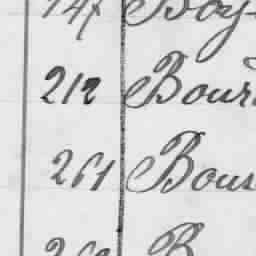 147 Boy
212 Bour
261 Bous
262 B